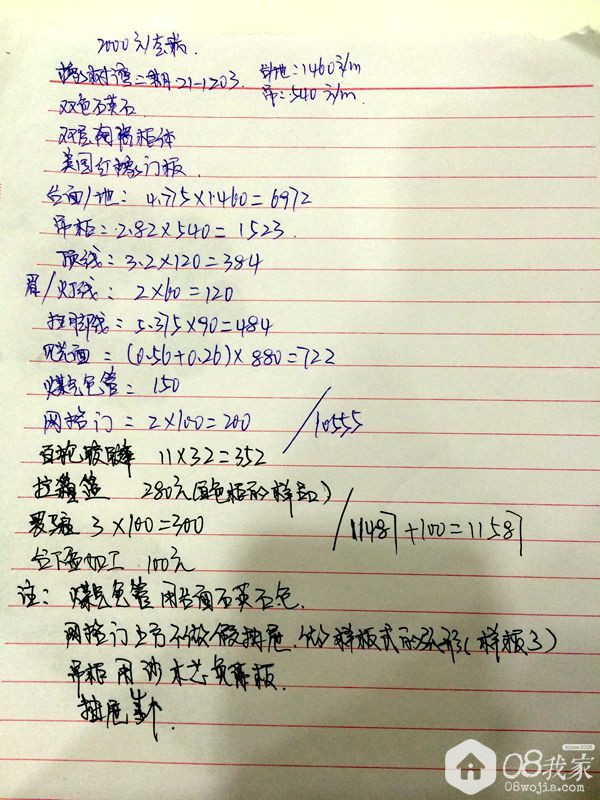 2000元/套
橡树湾二期 21-1203. 台地:1460元/m
吊:540元/m
双色石英石
双层柜体
美国红橡门板
台面/地: 4.775×1460=6972
吊柜:2.82×540=1523
顶线:3.2×120=384
眉/灯线: 2×60=120
5.375×90=484
面: (0.56+0.26)×880=722
煤气包管: 150
网格门= 2×100=200 /10555
百 11×32=352
拉篮 280元(白色柜的样品)
3×100=300 /11487+100=11587
台下盆加工 100元
注: 煤气包管用台面石英石包.
网格门上方不做假抽屉,做样板式的弧形(样板3)
吊柜用沙木芯免漆板.
抽屉
08我家
08wojia.com